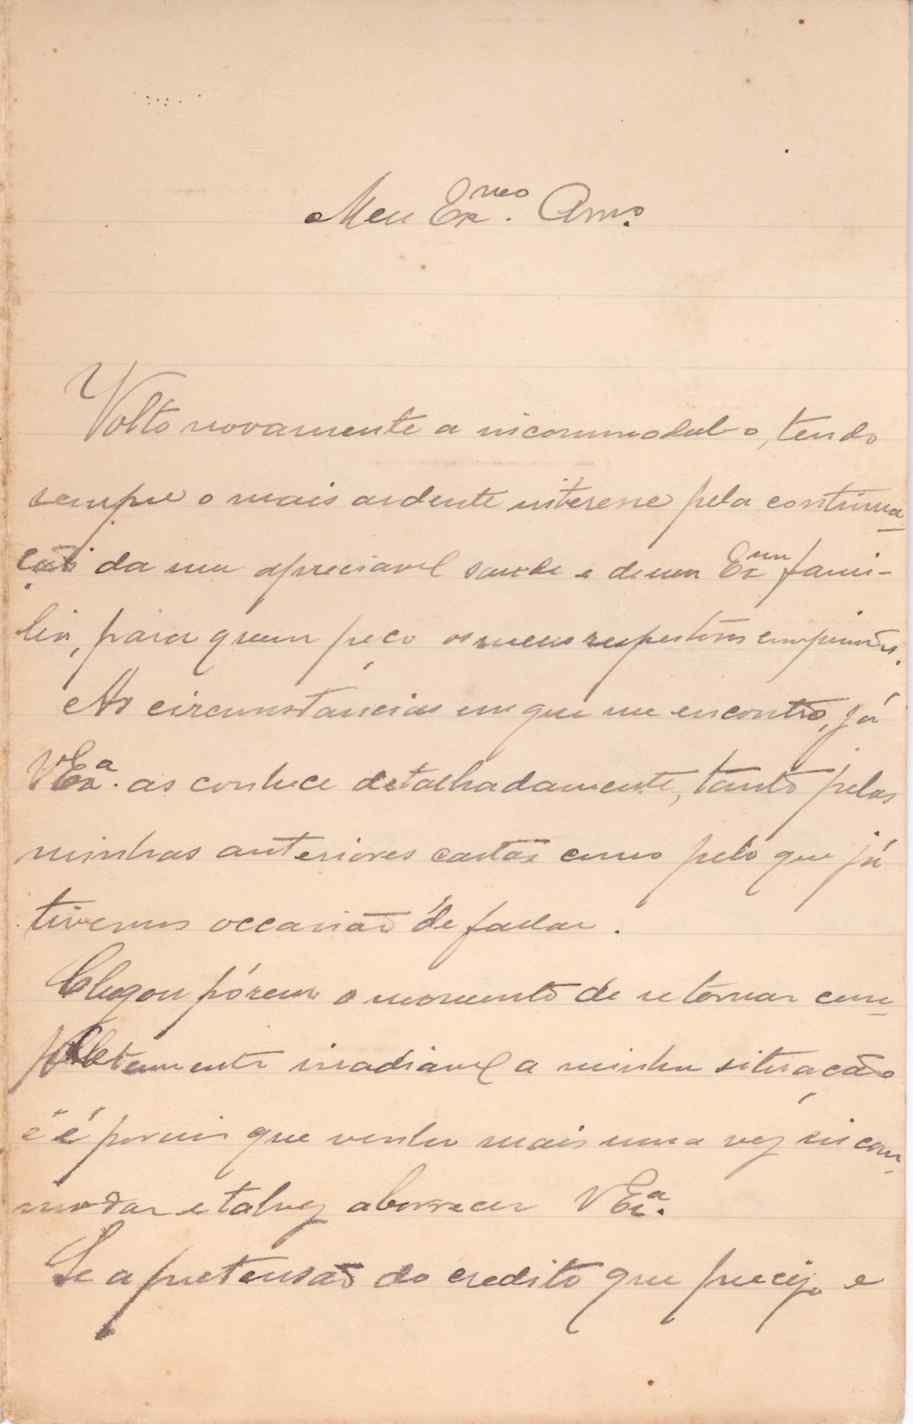 Meu Exmo. Amo.
Volto novamente a incommodal-o, tendo
sempre o mais ardente interesse pela continua-
ção da sua apreciavel saude e de sua Exma fami-
lia, para quem peço os meus respeitosos cumprimtos.
As circunstancias em que me encontro, já
VExa. as conhece detalhadamente, tanto pelas
minhas anteriores cartas como pelo que já
tivemos occasião de fallar.
Chegou pórem o momento de se tornar com-
pletamente inadiavel a minha situação
e é por isso que venho mais uma vez incom-
modar e talvez aborrecer VExa.
Se a pretensão do credito que preciso e